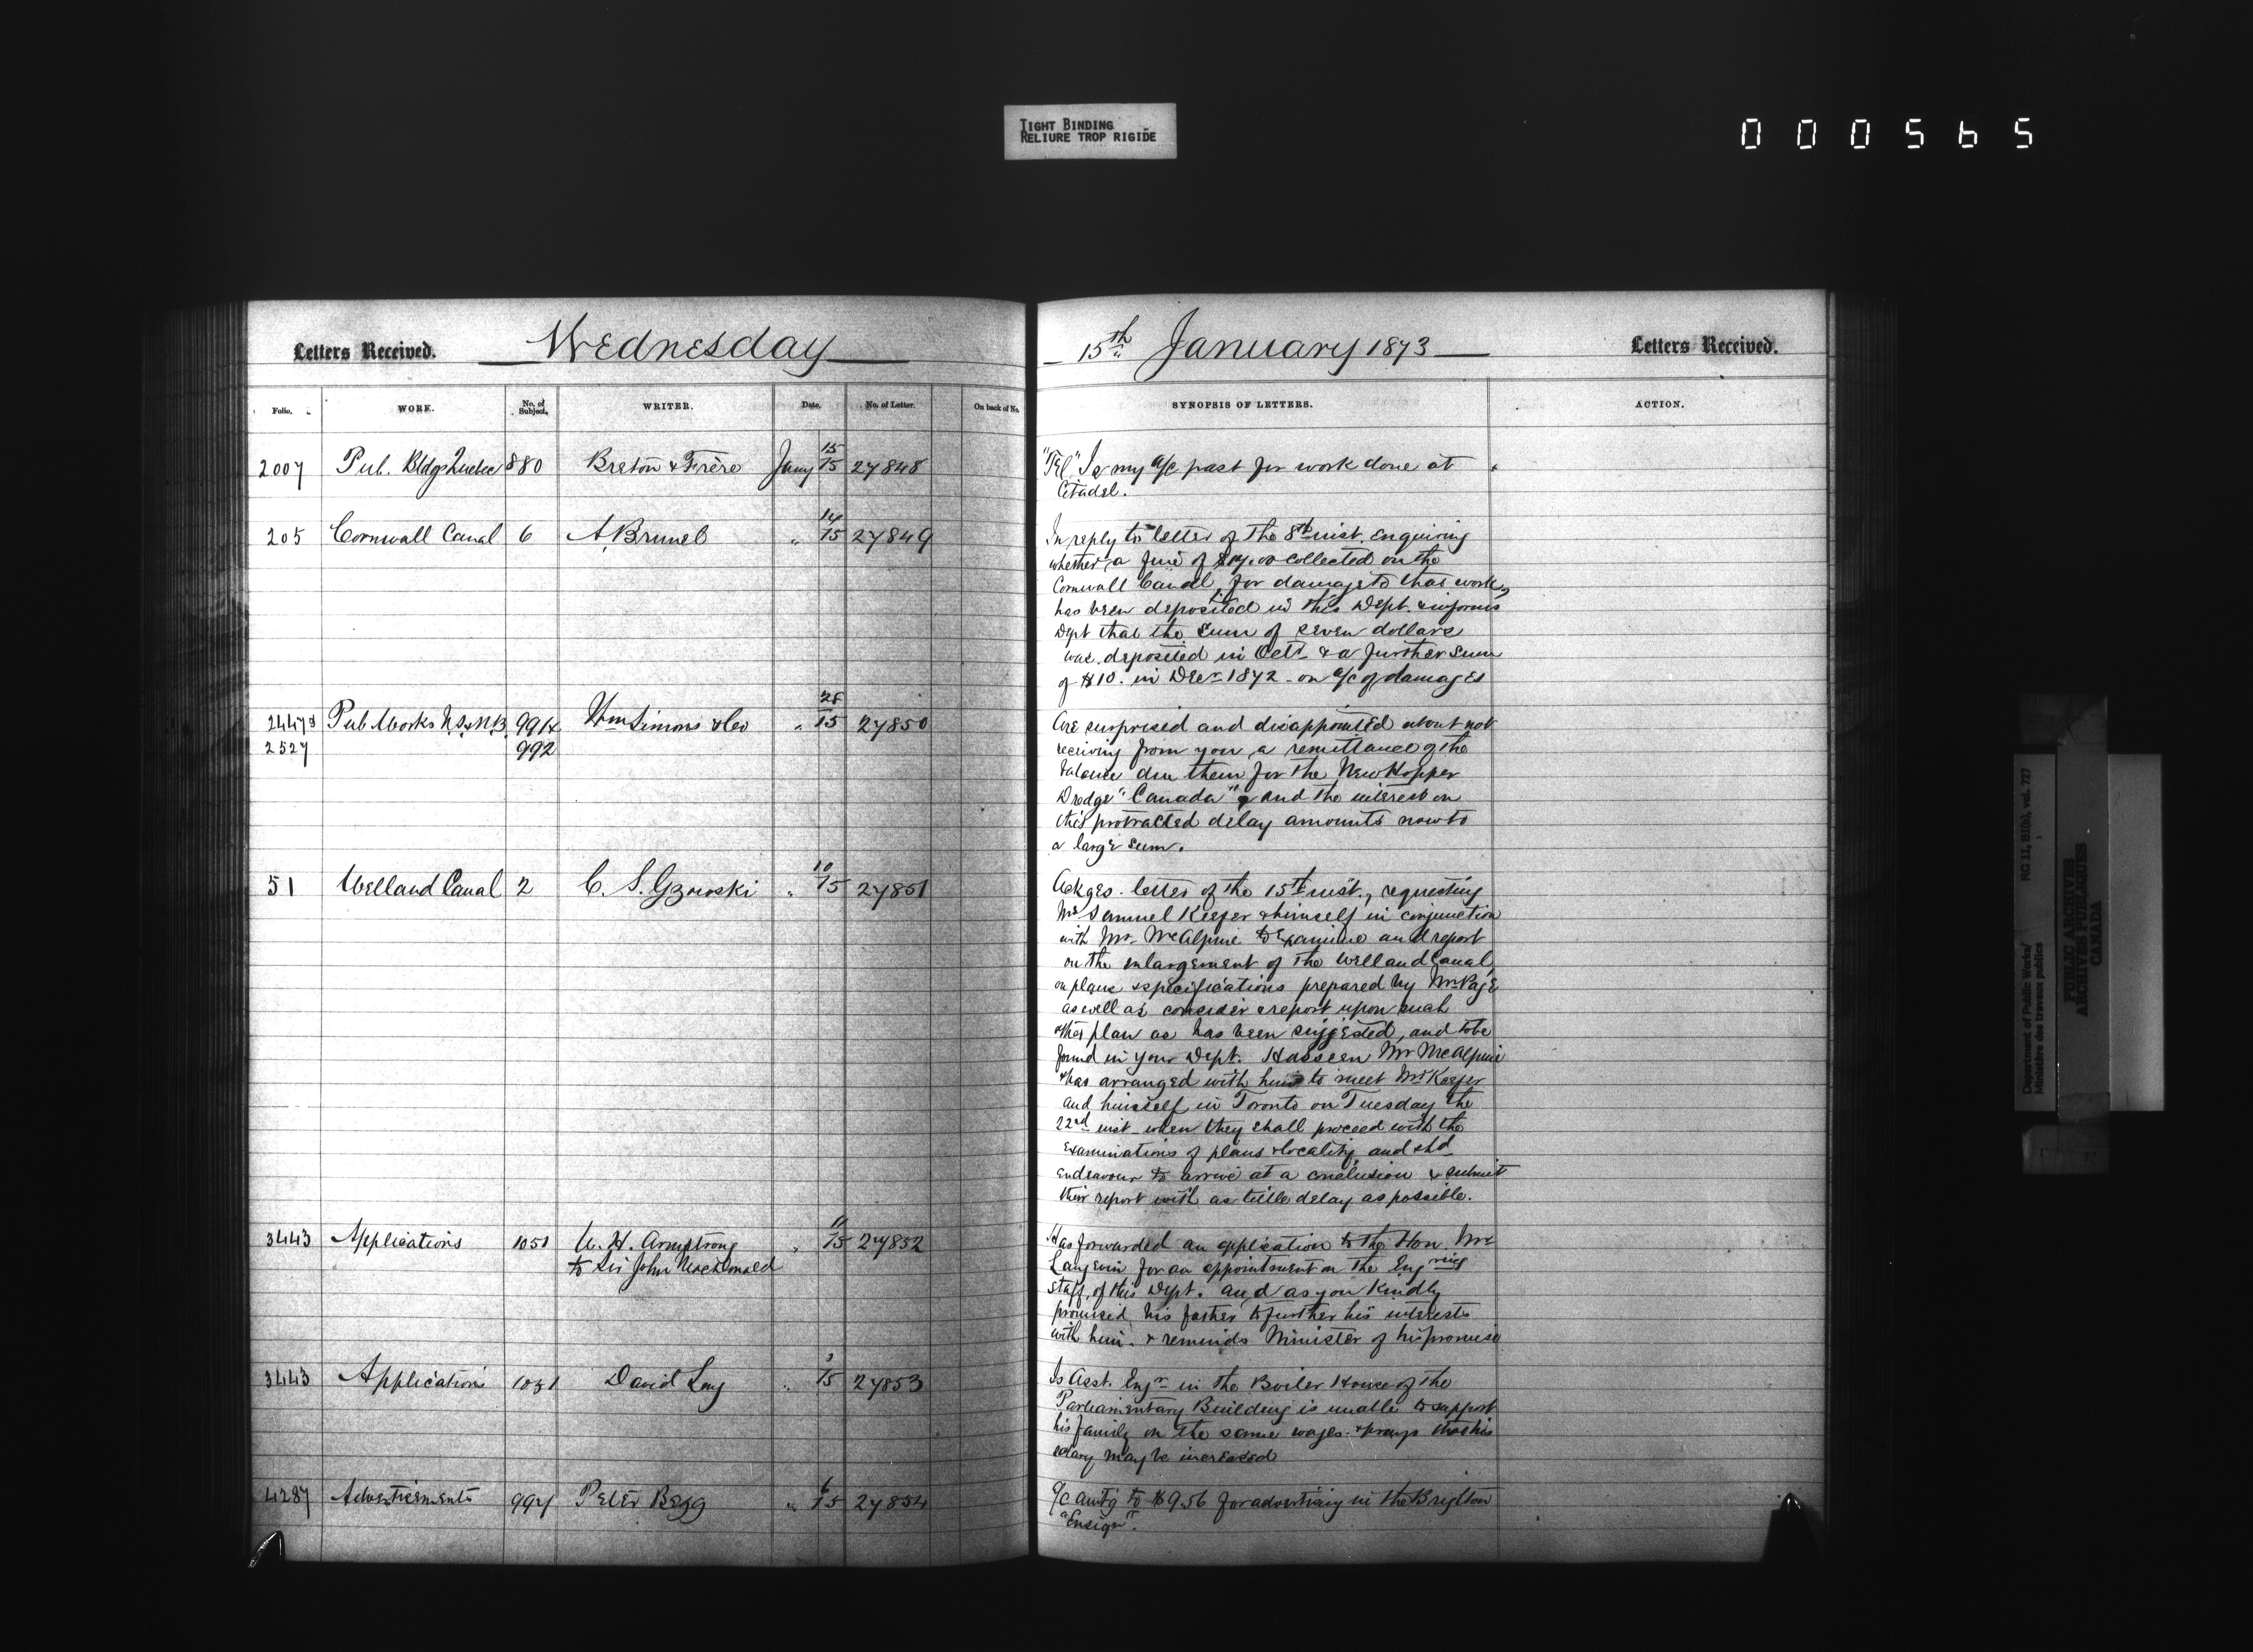 TIGHT BINDING
RELIURE TROP RIGIDE
000565
Letters Received. Wednesday
Folio. WORK. No. of Subject. WRITER. Date. No. of Letter. On back of No.
2007 Pub. Bldgs Quebec 880 Breton & Frère Jany 15/15 27848
205 Cornwall Canal 6 A. Brunel " 14/15 27849
2447½ Pub Works N.S. & N.B. 991½ Wm Simons & Co " 28/15 27850
2527 992
51 Welland Canal 2 C. S. Gzowski " 10/15 27851
3443 Applications 1051 W. H. Armstrong " 11/15 27852
to Sir John Macdonald
3443 Application 1051 David Lay " 3/15 27853
4287 Advertisements 997 Peter Begg " 6/15 27854
15th January 1873 Letters Received.
SYNOPSIS OF LETTERS. ACTION.
"Tel" Is my a/c past for work done at
Citadel.
In reply to letter of the 8th inst. enquiring
whether a fine of $17.00 collected on the
Cornwall Canal, for damage to that work,
has been deposited in this Dept. & informs
Dept that the sum of seven dollars
was deposited in Octr & a further sum
of $10. in Decr 1872 on a/c of damages
Are surprised and disappointed about not
receiving from you a remittance of the
balance due them for the New Hopper
Dredge "Canada" and the interest on
this protracted delay amounts now to
a large sum.
Ackges. letter of the 15th inst., requesting
Mr Samuel Keefer & himself in conjunction
with Mr. McAlpine to examine and report
on the enlargement of the Welland Canal,
on plans & specifications prepared by Mr Page
as well as consider & report upon such
other plan as has been suggested, and to be
found in your Dept. Has seen Mr McAlpine
& has arranged with him to meet Mr Keefer
and himself in Toronto on Tuesday the
22nd inst when they shall proceed with the
examinations of plans & locality and shd
endeavour to arrive at a conclusion & submit
their report with as little delay as possible.
Has forwarded an application to the Hon. Mr
Langevin for an appointment on the Engring
staff, of this Dept. and as you kindly
promised his father to further his interests
with him. & reminds Minister of his promise
Is Asst. Engr in the Boiler House of the
Parliamentary Building is unable to support
his family on the same wages & prays that his
salary may be increased
a/c amtg to $9.56 for advertising in the Brighton
"Ensign".
Department of Public Works/
Ministère des travaux publics
RG 11, B1(b), vol. 727
PUBLIC ARCHIVES
ARCHIVES PUBLIQUES
CANADA